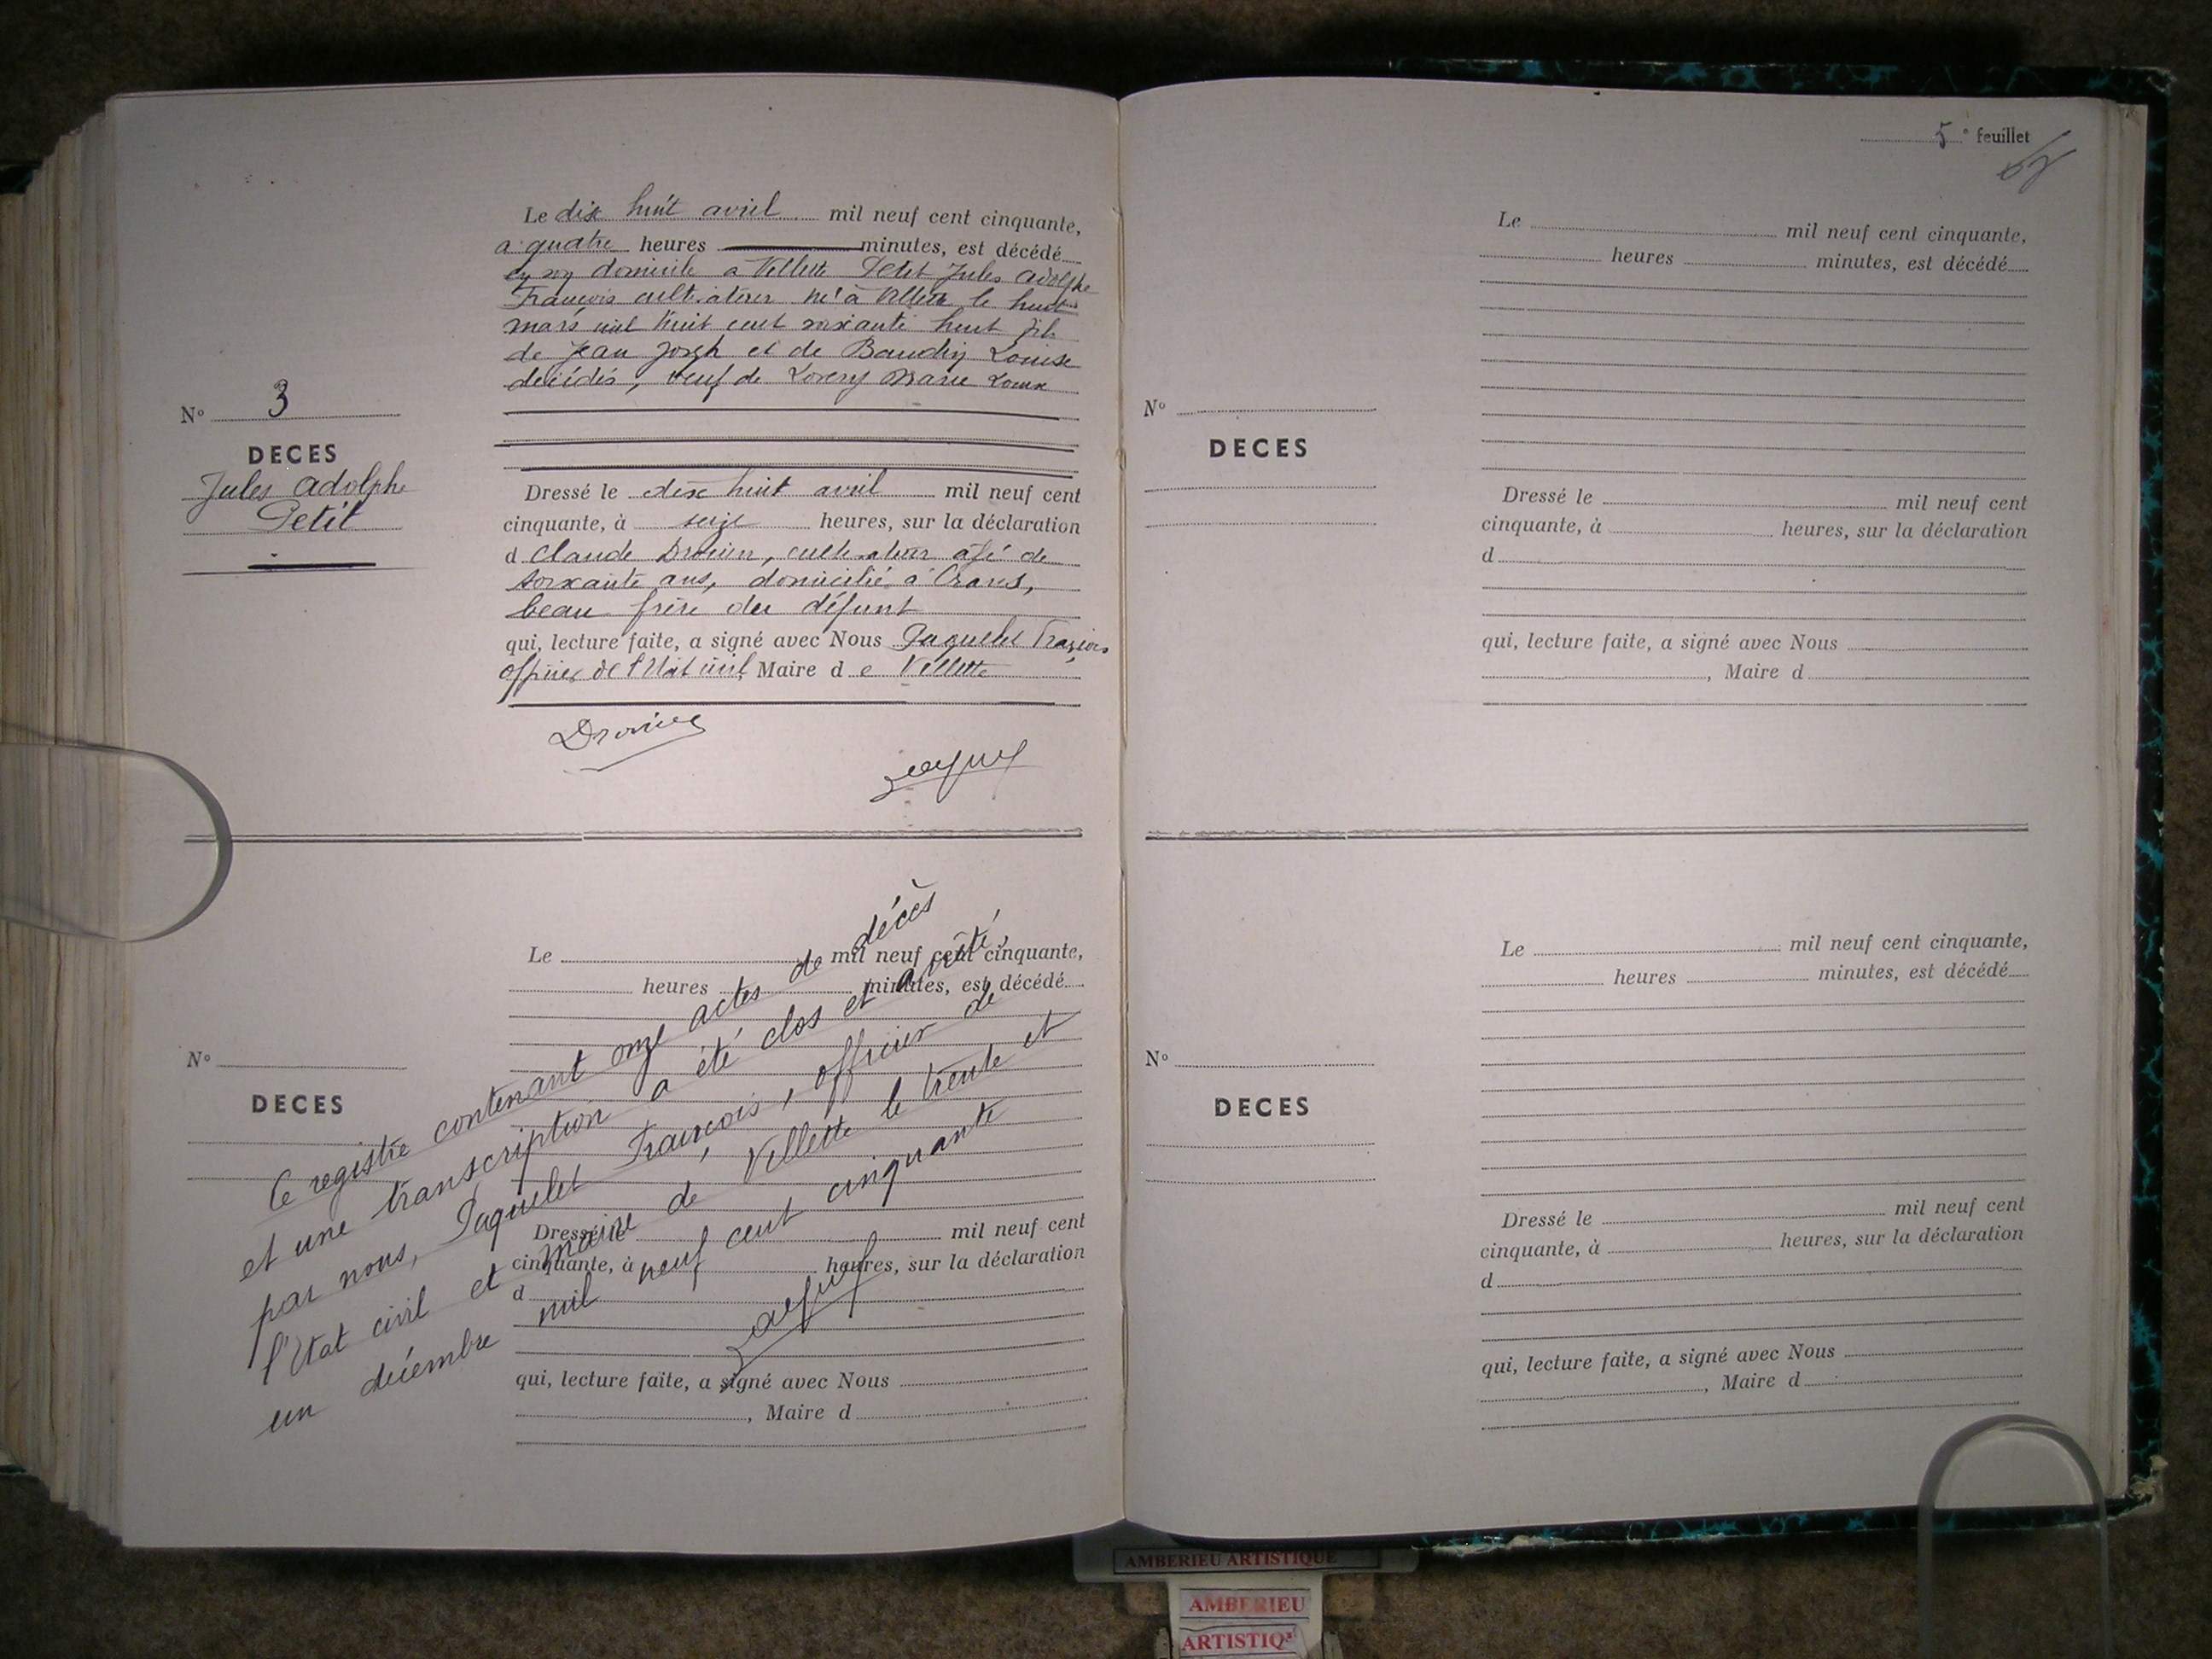 Le dix huit avril mil neuf cent cinquante,
a quatre heures minutes, est décédé
en son domicile a Villette Petit Jules Adolphe
François cultivateur né à Villette le huit
mars mil huit cent soixante huit fils
de Jean Joseph et de Baudin Louise
décédés, veuf de Marie
N° 3
DECES
Jules Adolphe
Petit
Dressé le dix huit avril mil neuf cent
cinquante, à seize heures, sur la déclaration
d Claude cultivateur âgé de
soixante ans, domicilié à Crans,
beau frère du défunt
qui, lecture faite, a signé avec Nous Paquelet François
officier de l'Etat civil, Maire d e Villette
Le mil neuf cent cinquante,
heures minutes, est décédé
N°
DECES
Dressé le mil neuf cent
cinquante, à heures, sur la déclaration
d
qui, lecture faite, a signé avec Nous
, Maire d
Ce registre contenant onze actes de décès
et une transcription a été clos et arrêté,
par nous, Paquelet François, officier de
l'Etat civil et maire de Villette le trente et
un décembre mil neuf cent cinquante
5 e feuillet
Le mil neuf cent cinquante,
heures minutes, est décédé
N°
DECES
Dressé le mil neuf cent
cinquante, à heures, sur la déclaration
d
qui, lecture faite, a signé avec Nous
, Maire d
Le mil neuf cent cinquante,
heures minutes, est décédé
N°
DECES
Dressé le mil neuf cent
cinquante, à heures, sur la déclaration
d
qui, lecture faite, a signé avec Nous
, Maire d
AMBERIEU ARTISTIQUE
AMBERIEU
ARTISTIQ